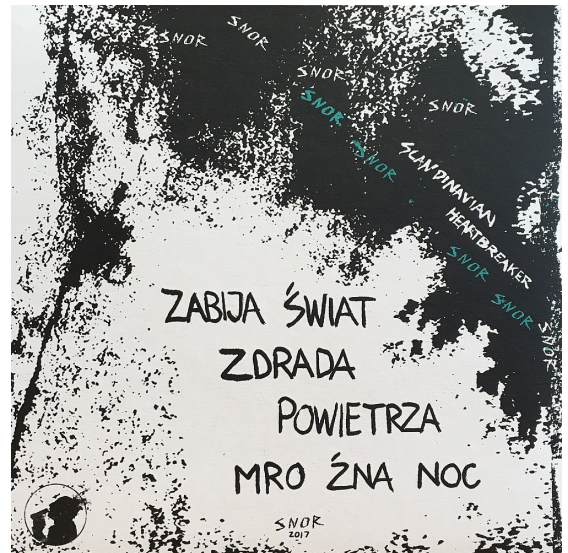 SNOR
SNOR
SNOR
SNOR
SNOR
SNOR
SCANDINAVIAN
HEARTBREAKER
SNOR
SNOR
SNOR
ZABIJA ŚWIAT
ZDRADA
POWIETRZA
MRO ŹNA NOC
SNOR
2017